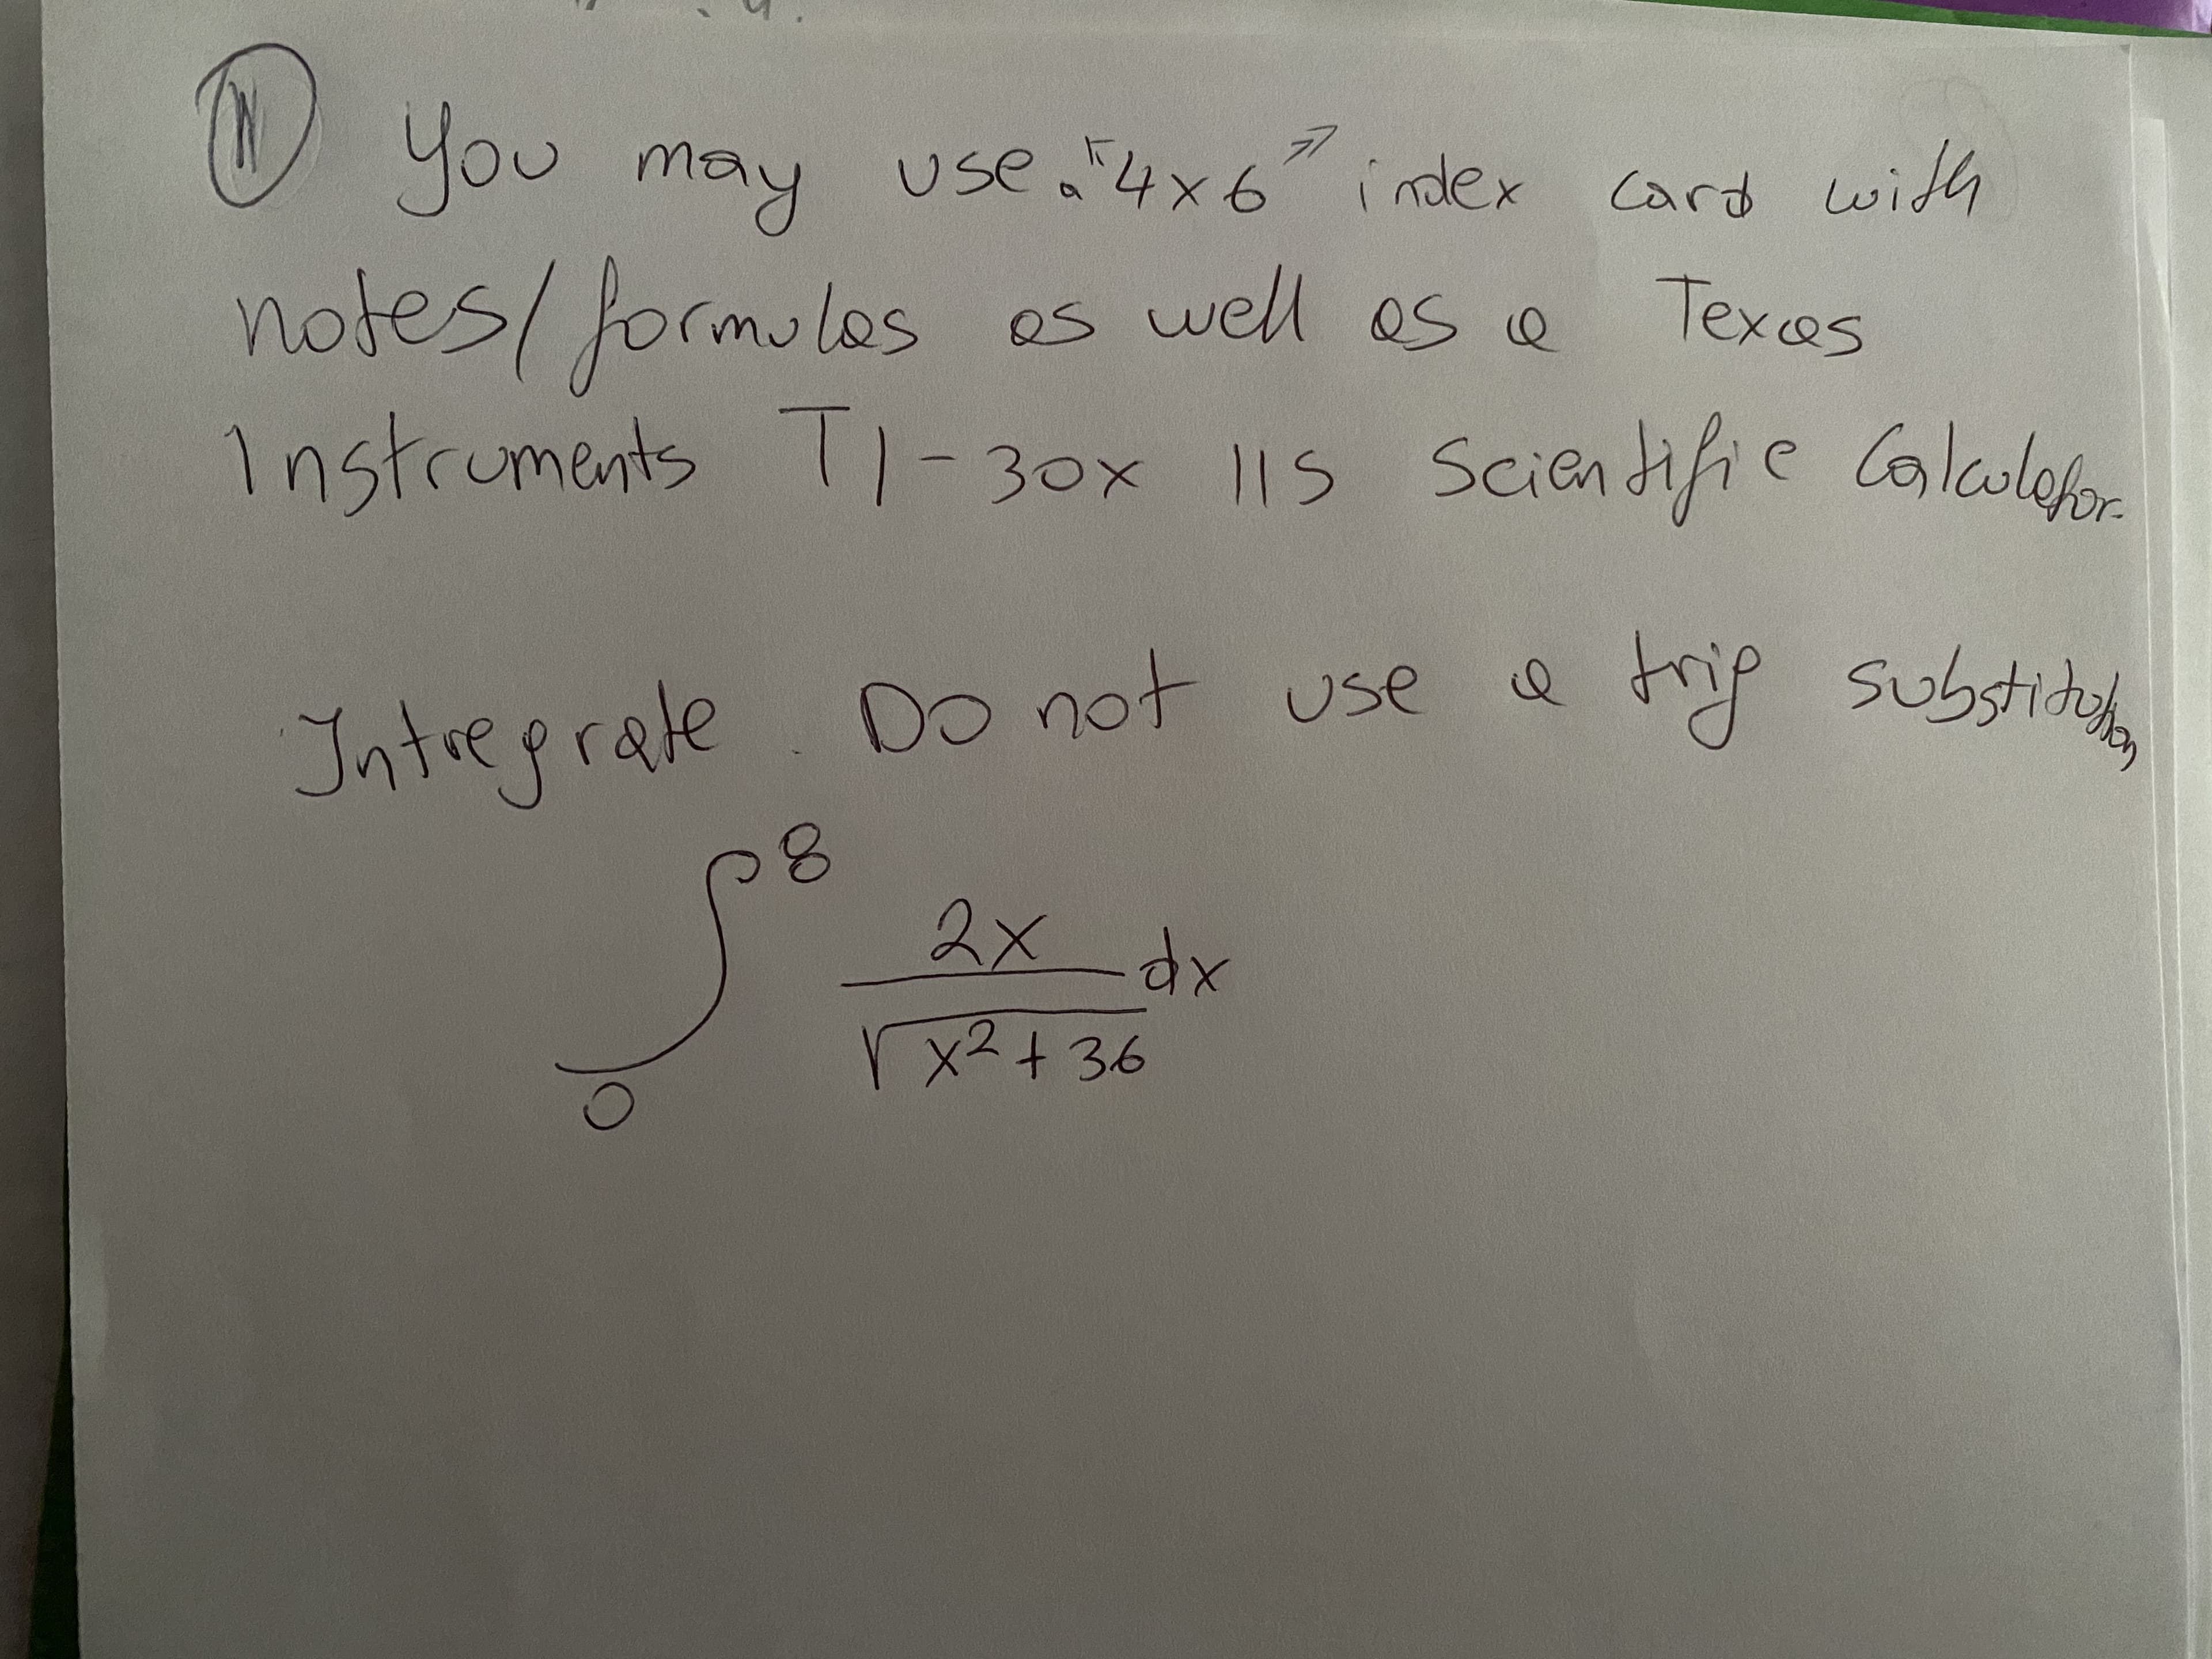 You may use a "4x6" index card with
notes/formulas as well as a Texas
Instruments TI-30x IIS Scientific Calculator.
Intregrate. Do not use a trig substitution
∫₀⁸ 2x/√(x²+36) dx